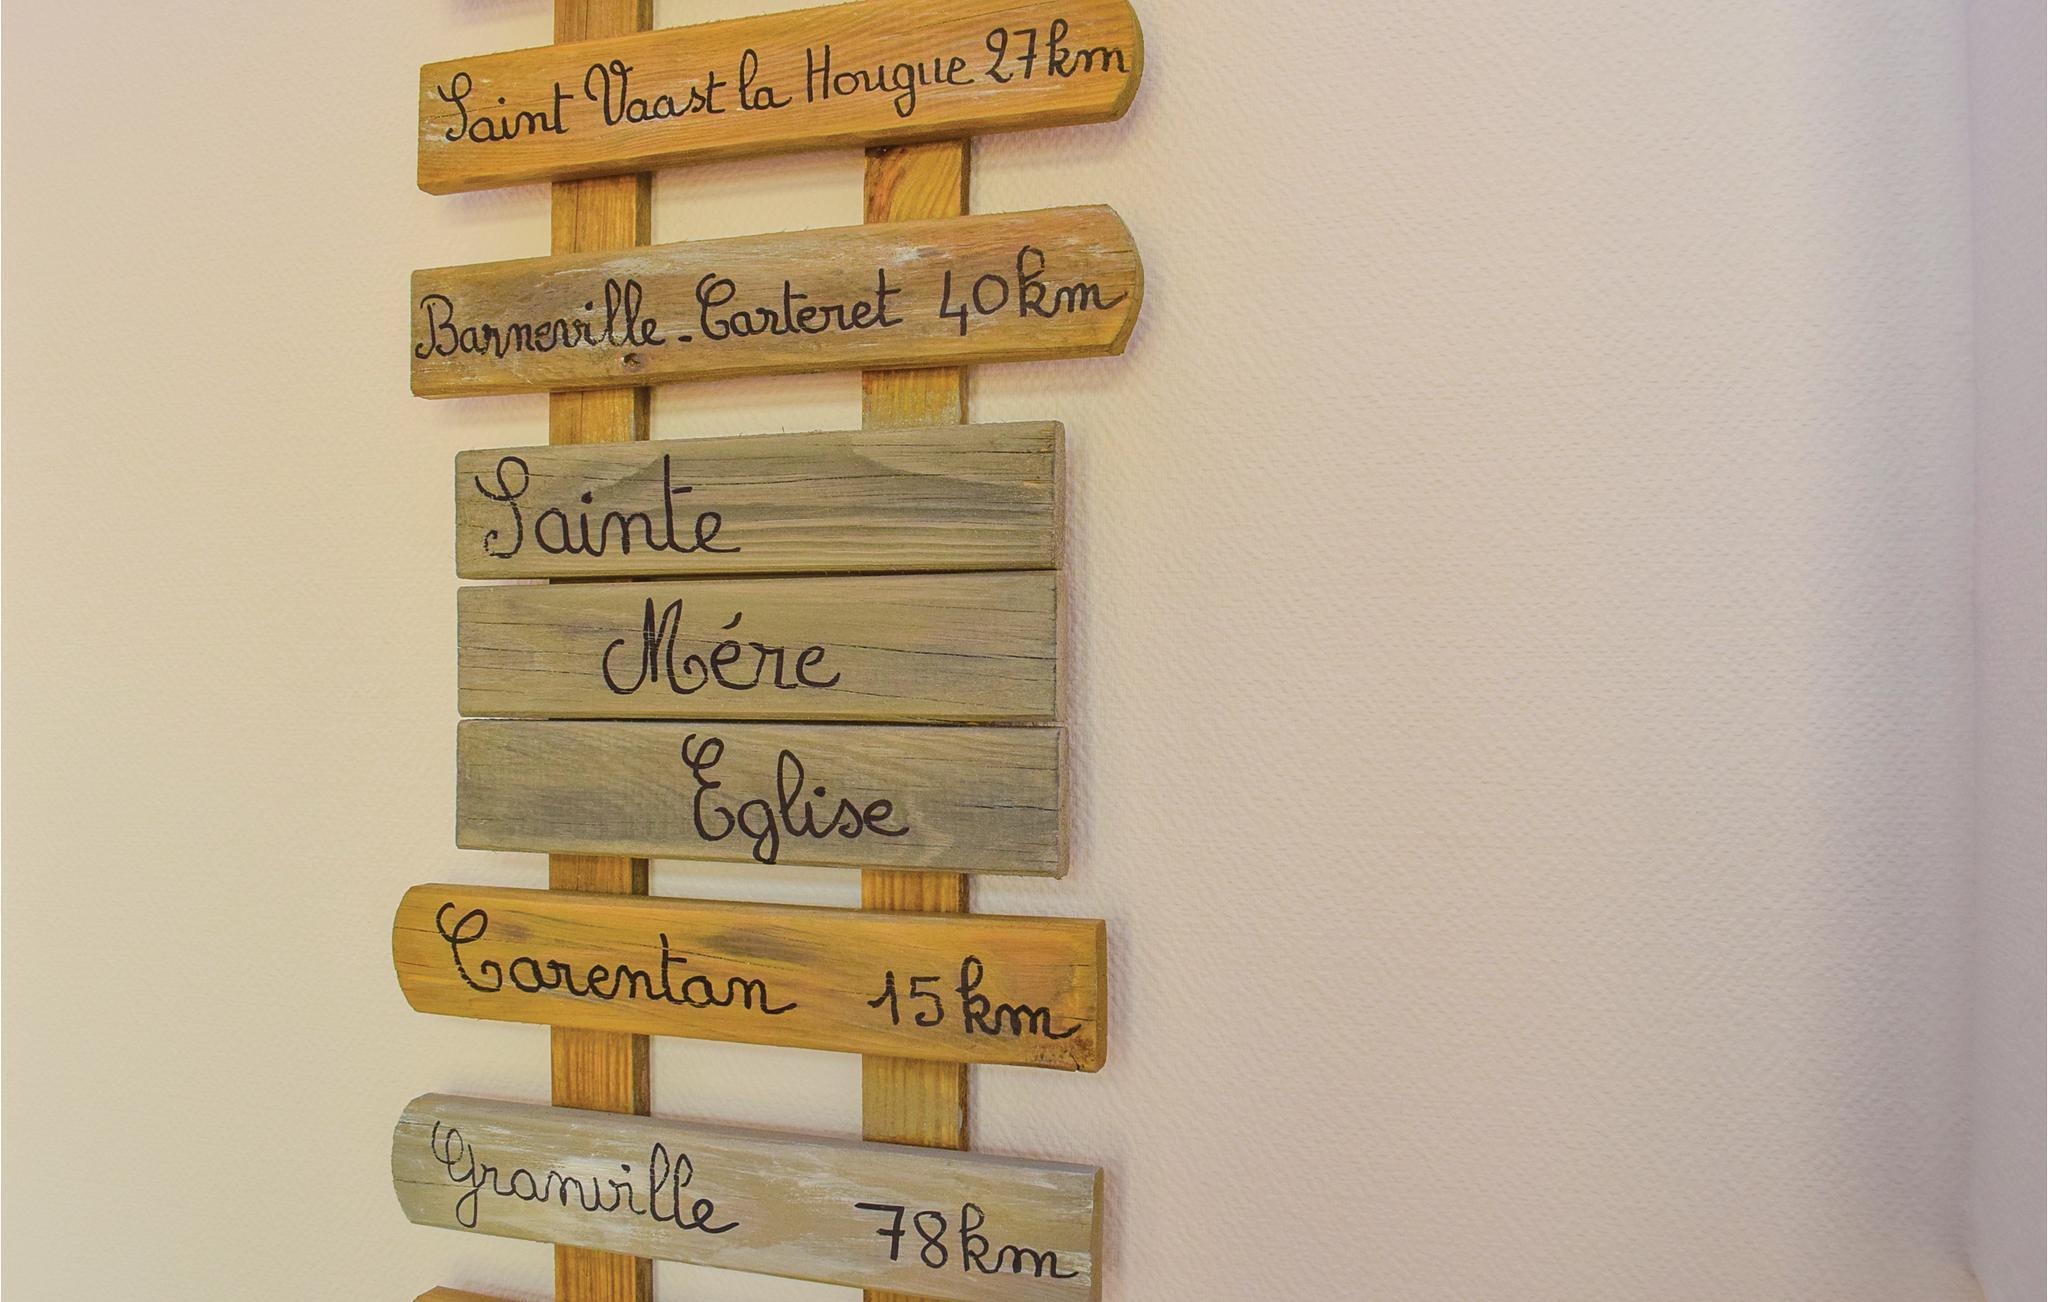 Saint Vaast la Hougue 27km
Barneville-Carteret 40km
Sainte
Mére
Eglise
Carentan 15km
Granville 78km